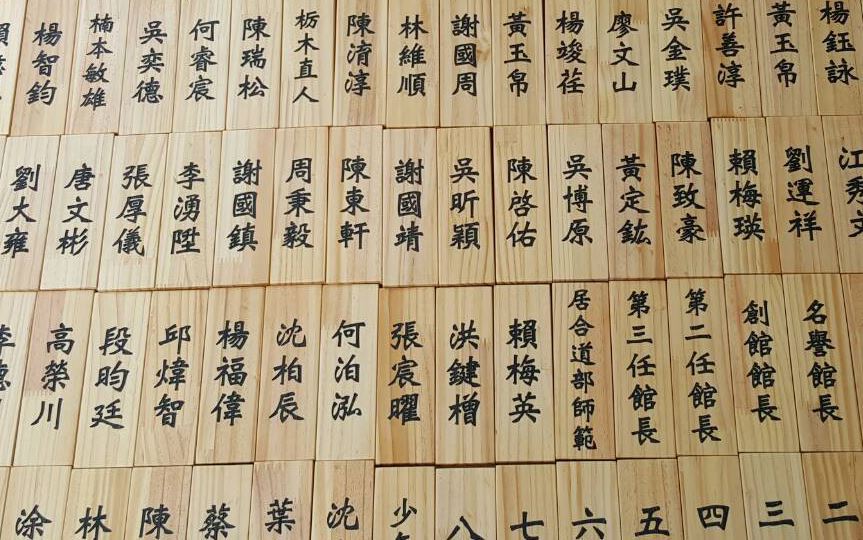 楊鈺詠
黃玉帛
許善淳
吳金璞
廖文山
楊竣荏
黃玉帛
謝國周
林維順
陳淯淳
栃木直人
陳瑞松
何睿宸
吳奕德
楠本敏雄
楊智鈞
劉運祥
賴梅瑛
陳致豪
黃定鈜
吳博原
陳啓佑
吳昕穎
謝國靖
陳東軒
周秉毅
謝國鎮
李湧陞
張厚儀
唐文彬
劉大雍
名譽館長
創館館長
第二任館長
第三任館長
居合道部師範
賴梅英
洪鍵橧
張宸曜
何泊泓
沈柏辰
楊福偉
邱煒智
段昀廷
高榮川
二
三
四
五
六
七
八
少
沈
葉
蔡
陳
林
涂